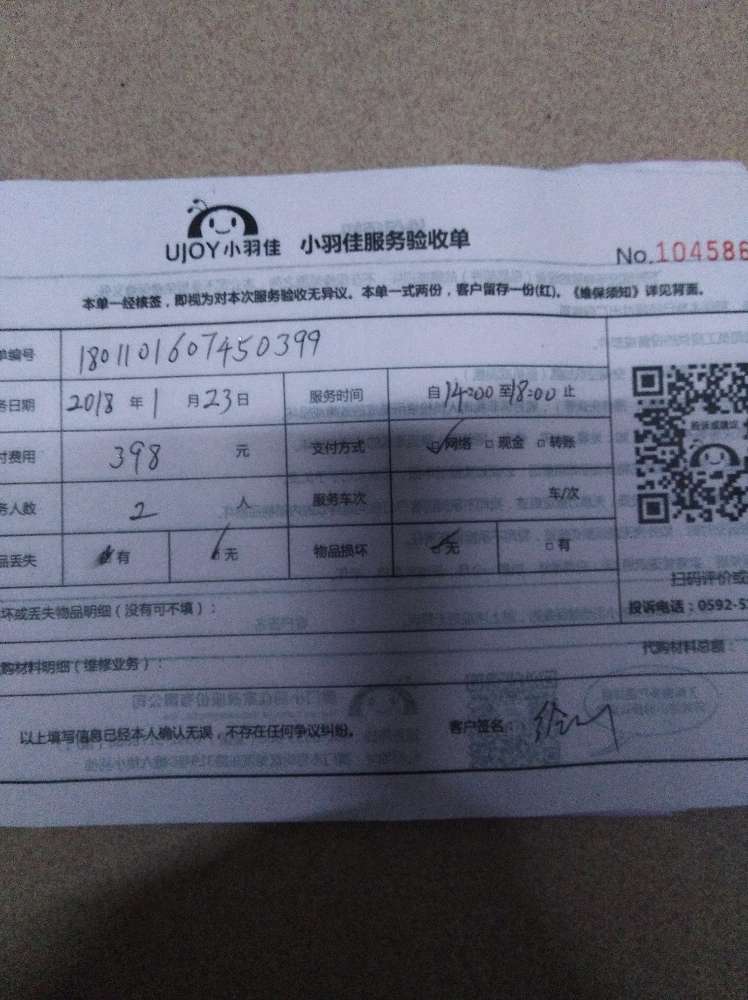 UJOY小羽佳 小羽佳服务验收单
No.104586
本单一经核签，即视为对本次服务验收无异议。本单一式两份，客户留存一份(红)。《维保须知》详见背面。
单编号 1801101607450399
务日期 2018 年 1 月 23 日 服务时间 自 14:00 至 18:00 止
付费用 398 元 支付方式 网络 现金 转账
务人数 2 人 服务车次 车/次
品丢失 有 无 物品损坏 无 有
投诉或建议
扫码评价或
投诉电话：0592-5
坏或丢失物品明细（没有可不填）：
购材料明细（维修业务）： 代购材料总额：
以上填写信息已经本人确认无误，不存在任何争议纠纷。 客户签名